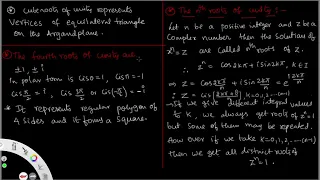 ⊛ cube roots of unity represents
Vertices of equilateral triangle
on the Argand plane.
⊛ The fourth roots of unity are
±1, ±i
In polar form is cis0=1, cisπ=-1
cis π/2 = i, cis 3π/2 or cis(-π/2) = -i
* It represents regular polygon of
4 sides and it forms a square.
⊛ The nth roots of unity :-
Let n be a positive integer and z be a
Complex number then the solution of
zⁿ=1 are called nth roots of z.
zⁿ = cos2kπ + i sin2kπ, k∈I
z = cos 2kπ/n + i sin 2kπ/n = e^(i2kπ/n)
k=0,1,2,...(n-1)
If we give different integral values
to k, we always get roots of zⁿ=1
but some of them may be repeated.
However if we take k=0,1,2,...(n-1)
then we get all distinct roots of
zⁿ=1.